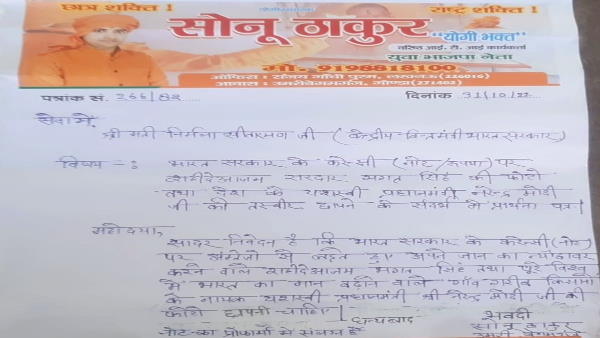 छात्र शक्ति !
राष्ट्र शक्ति !
सोनू ठाकुर
"योगी भक्त"
वरिष्ठ आई. टी. आई कार्यकर्ता
युवा भाजपा नेता
मो. 9198818100
ऑफिस : संजय गाँधी पुरम, लखनऊ(226016)
आवास : उमरीबेगमगंज, गोण्डा(271402)
पत्रांक सं. 266/82
दिनांक 31/10/22
सेवा में,
श्री मती निर्मला सीतारमण जी (केन्द्रीय वित्तमंत्री भारत सरकार)
विषय -: भारत सरकार के करेंसी (नोट/रूपया) पर
शहीदेआजम सरदार भगत सिंह की फोटो
तथा देश के यशस्वी प्रधानमंत्री नरेन्द्र मोदी
जी की तस्वीर छापने के संदर्भ में प्रार्थना पत्र।
महोदया,
सादर निवेदन है कि भारत सरकार के करेंसी (नोट)
पर अंग्रेजो से लड़ते हुए अपने जान का न्योछावर
करने वाले शहीदेआजम भगत सिंह तथा पूरे विश्व
में भारत का मान बढ़ाने वाले गाँव गरीब किसानों
के नायक यशस्वी प्रधानमंत्री श्री नरेन्द्र मोदी जी की
फोटो छापनी चाहिए।
धन्यवाद
भवदी
नोट का प्रोफार्मा में संलग्न है
सोनू ठाकुर